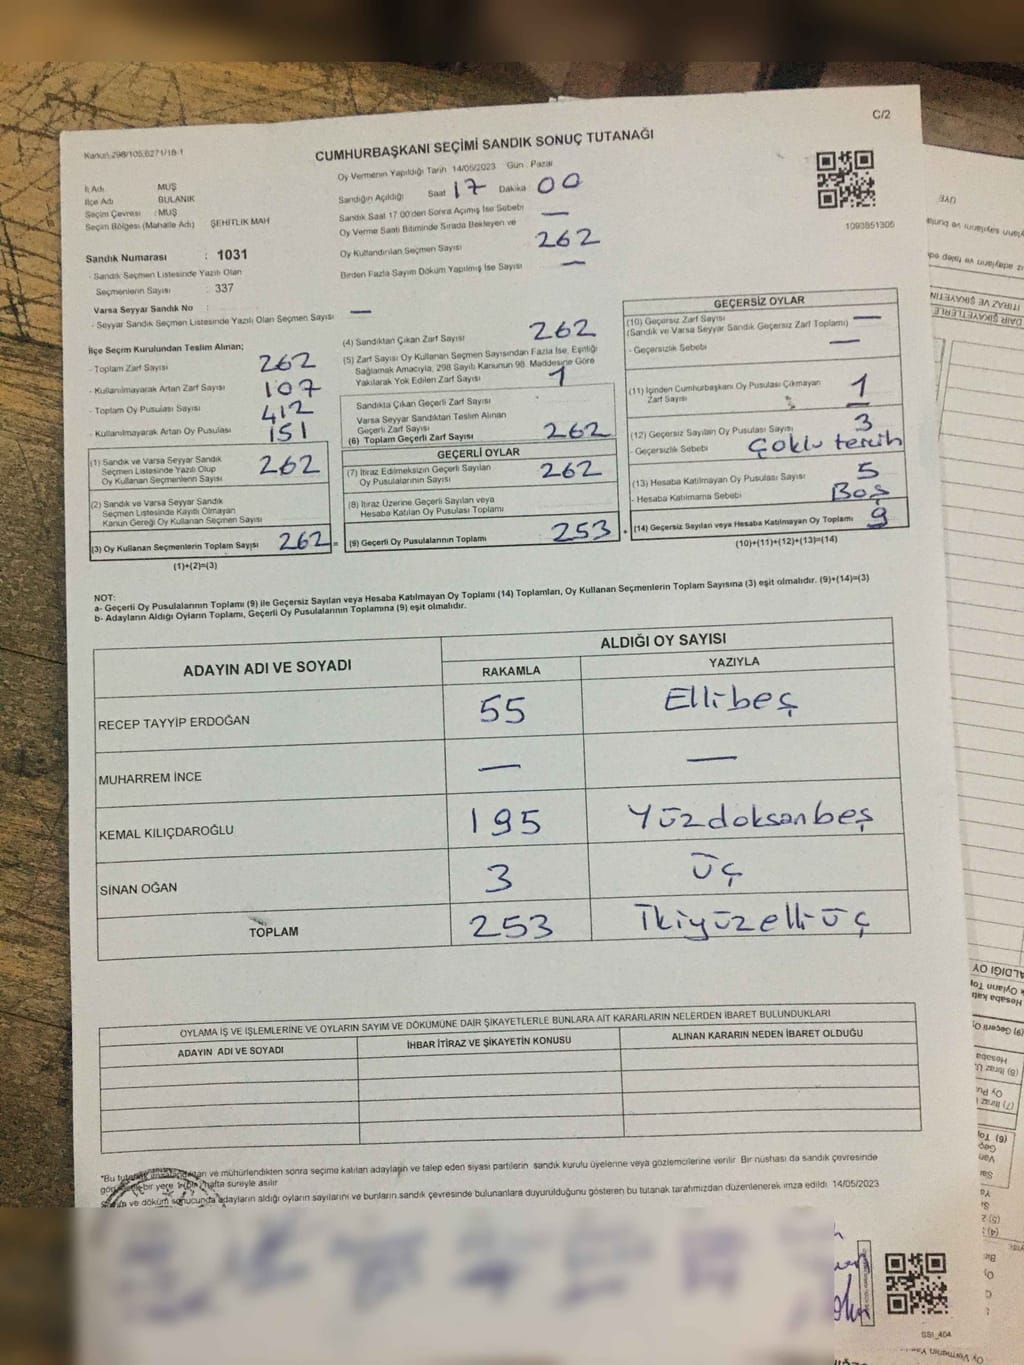 C/2
Kanun:298/105,6271/18-1
CUMHURBAŞKANI SEÇİMİ SANDIK SONUÇ TUTANAĞI
İl Adı MUŞ
İlçe Adı BULANIK
Seçim Çevresi : MUŞ
Seçim Bölgesi (Mahalle Adı) ŞEHİTLİK MAH
Sandık Numarası : 1031
- Sandık Seçmen Listesinde Yazılı Olan
Seçmenlerin Sayısı : 337
Varsa Seyyar Sandık No :
- Seyyar Sandık Seçmen Listesinde Yazılı Olan Seçmen Sayısı —
Oy Vermenin Yapıldığı Tarih 14/05/2023 Gün : Pazar
Sandığın Açıldığı Saat 17 Dakika : 00
Sandık Saat 17 00'den Sonra Açımış İse Sebebi —
Oy Verme Saati Bitiminde Sırada Bekleyen ve
Oy Kullandırılan Seçmen Sayısı 262
Birden Fazla Sayım Döküm Yapılmış İse Sayısı —
1093851305
İlçe Seçim Kurulundan Teslim Alınan;
- Toplam Zarf Sayısı 262
- Kullanılmayarak Artan Zarf Sayısı 107
- Toplam Oy Pusulası Sayısı 412
- Kullanılmayarak Artan Oy Pusulası 151
(1) Sandık ve Varsa Seyyar Sandık
Seçmen Listesinde Yazılı Olup
Oy Kullanan Seçmenlerin Sayısı 262
(2) Sandık ve Varsa Seyyar Sandık
Seçmen Listesinde Kayıtlı Olmayan
Kanun Gereği Oy Kullanan Seçmen Sayısı
(3) Oy Kullanan Seçmenlerin Toplam Sayısı 262 =
(1)+(2)=(3)
(4) Sandıktan Çıkan Zarf Sayısı 262
(5) Zarf Sayısı Oy Kullanan Seçmen Sayısından Fazla İse, Eşitliği
Sağlamak Amacıyla, 298 Sayılı Kanunun 98. Maddesine Göre
Yakılarak Yok Edilen Zarf Sayısı 1
Sandıkta Çıkan Geçerli Zarf Sayısı
Varsa Seyyar Sandıktan Teslim Alınan
Geçerli Zarf Sayısı
(6) Toplam Geçerli Zarf Sayısı 262
GEÇERLİ OYLAR
(7) İtiraz Edilmeksizin Geçerli Sayılan
Oy Pusulalarının Sayısı 262
(8) İtiraz Üzerine Geçerli Sayılan veya
Hesaba Katılan Oy Pusulası Toplamı
(9) Geçerli Oy Pusulalarının Toplamı 253 +
GEÇERSİZ OYLAR
(10) Geçersiz Zarf Sayısı —
(Sandık ve Varsa Seyyar Sandık Geçersiz Zarf Toplamı)
- Geçersizlik Sebebi —
(11) İçinden Cumhurbaşkanı Oy Pusulası Çıkmayan
Zarf Sayısı 1
(12) Geçersiz Sayılan Oy Pusulası Sayısı 3
- Geçersizlik Sebebi Çoklu tercih
(13) Hesaba Katılmayan Oy Pusulası Sayısı 5
- Hesaba Katılmama Sebebi Boş
(14) Geçersiz Sayılan veya Hesaba Katılmayan Oy Toplamı 9
(10)+(11)+(12)+(13)=(14)
NOT:
a- Geçerli Oy Pusulalarının Toplamı (9) ile Geçersiz Sayılan veya Hesaba Katılmayan Oy Toplamı (14) Toplamları, Oy Kullanan Seçmenlerin Toplam Sayısına (3) eşit olmalıdır. (9)+(14)=(3)
b- Adayların Aldığı Oyların Toplamı, Geçerli Oy Pusulalarının Toplamına (9) eşit olmalıdır.
ADAYIN ADI VE SOYADI ALDIĞI OY SAYISI
RAKAMLA YAZIYLA
RECEP TAYYİP ERDOĞAN 55 Ellibeş
MUHARREM İNCE — —
KEMAL KILIÇDAROĞLU 195 Yüzdoksanbeş
SİNAN OĞAN 3 üç
TOPLAM 253 İkiyüzelliüç
OYLAMA İŞ VE İŞLEMLERİNE VE OYLARIN SAYIM VE DÖKÜMÜNE DAİR ŞİKAYETLERLE BUNLARA AİT KARARLARIN NELERDEN İBARET BULUNDUKLARI
ADAYIN ADI VE SOYADI İHBAR İTİRAZ VE ŞİKAYETİN KONUSU ALINAN KARARIN NEDEN İBARET OLDUĞU
*Bu tutanak ve mühürlendikten sonra seçime katılan adayların ve talep eden siyasi partilerin sandık kurulu üyelerine veya gözlemcilerine verilir. Bir nüshası da sandık çevresinde
bir yere hafta süreyle asılır
ve döküm sonucunda adayların aldığı oyların sayılarını ve bunların sandık çevresinde bulunanlara duyurulduğunu gösteren bu tutanak tarafımızdan düzenlenerek imza edildi. 14/05/2023
SSI_404